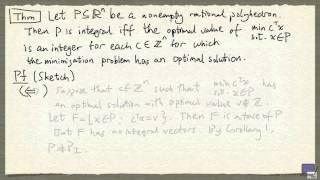 Thm Let P⊆ℝⁿ be a nonempty rational polyhedron.
Then P is integral iff the optimal value of min cᵀx s.t. x∈P
is an integer for each c∈ℤⁿ for which
the minimisation problem has an optimal solution.
Pf (Sketch)
(⇐) Suppose that c∈ℤⁿ such that min cᵀx s.t. x∈P has
an optimal solution with optimal value v∉ℤ.
Let F={x∈P: cᵀx=v}. Then F is a face of P
but F has no integral vectors. By Corollary 1,
P≠P_I.